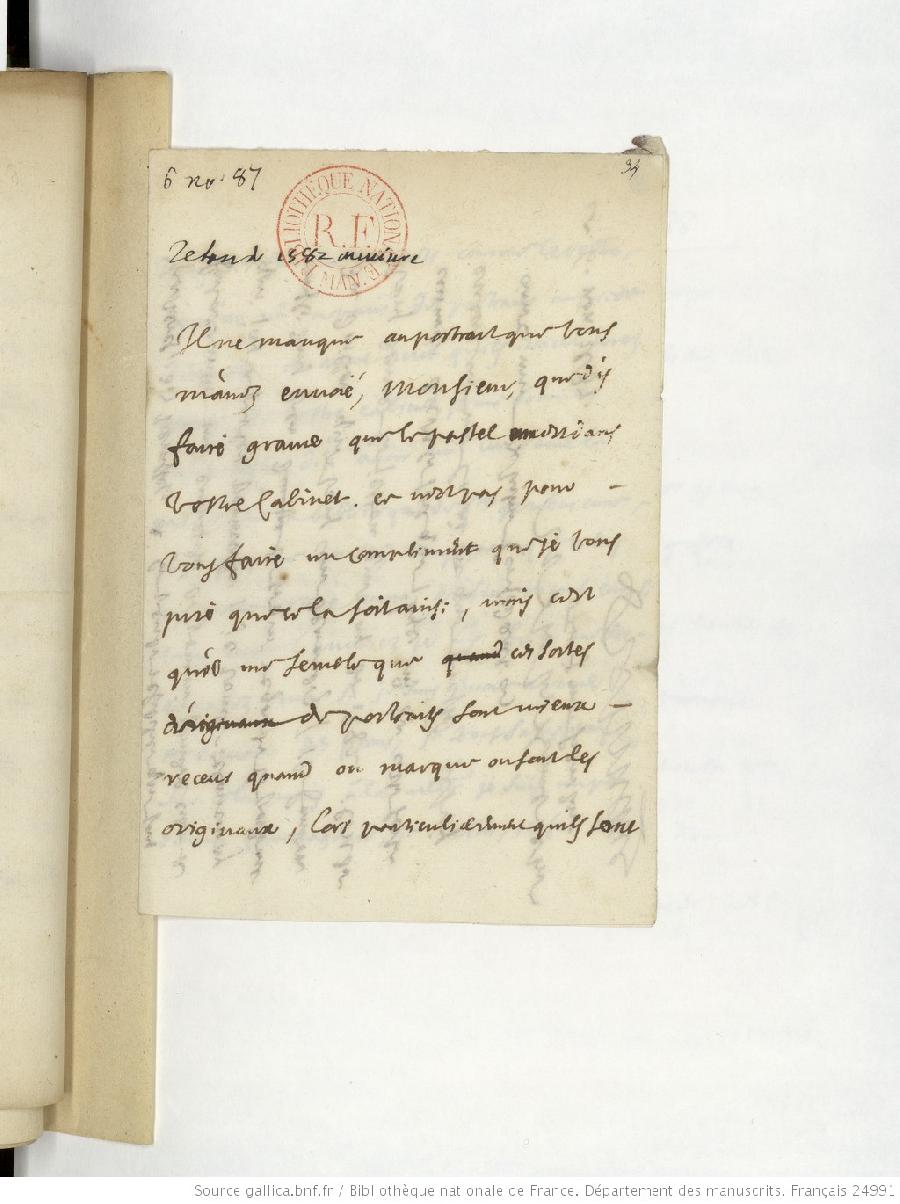 6 no. 87
34
BIBLIOTHÈQUE NATIONALE
R.F.
MAN.
1582
Il ne manque au portrait que vous
m'avéz envoié, Monsieur, que d'y
faire graver que le pastel est dans
vostre Cabinet. ce n'est pas pour –
vous faire un compliment que je vous
prie que cela soit ainsi, mais c'est
qu'il me semble que quand ces sortes
d'originaux de portraits sont mieux –
receus quand on marque ou sont les
originaux, lors particulierement quils sont
Source gallica.bnf.fr / Bibliothèque nationale de France. Département des manuscrits. Français 24991